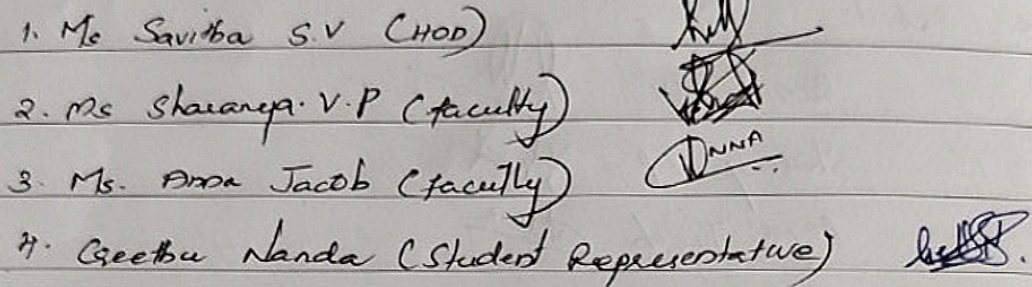 1. Ms Savitha S.V (HOD)
2. Ms Sharanya. V. P (faculty)
3. Ms. Anna Jacob (faculty) ANNA
4. Geethu Nanda (Student Representative)